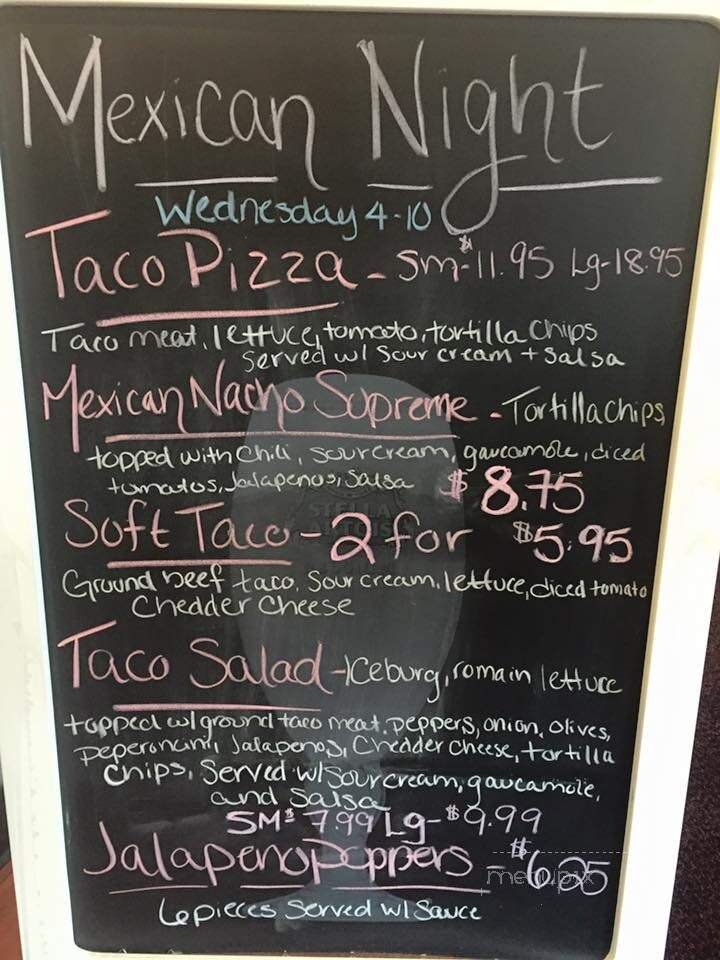 Mexican Night
Wednesday 4-10
Taco Pizza - Sm-$11.95 Lg-18.95
Taco meat, lettuce, tomato, tortilla chips
served w/ sour cream + salsa
Mexican Nacho Supreme - Tortilla chips,
topped with chili, sour cream, gaucamole, diced
tomatos, Jalapenos, Salsa $8.75
STELLA
ARTOIS
Soft Taco - 2 for $5.95
Ground beef taco, Sour cream, lettuce, diced tomato
Chedder Cheese
Taco Salad - Iceburg, romain lettuce
topped w/ ground taco meat, peppers, onion, olives,
peperoncini, Jalapenos, Chedder cheese, tortilla
chips, Served w/ Sour cream, gaucamole,
and Salsa
SM-$7.99 Lg-$9.99
Jalapeno poppers - $6.25
menupix
6 pieces Served w/ Sauce